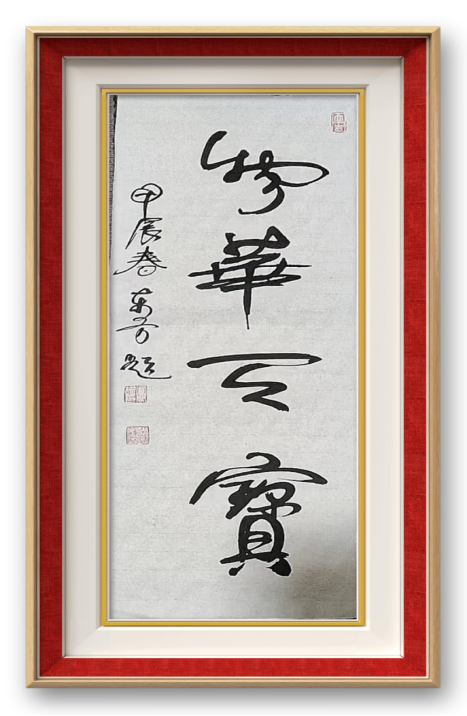 物華天寶
甲辰春
題